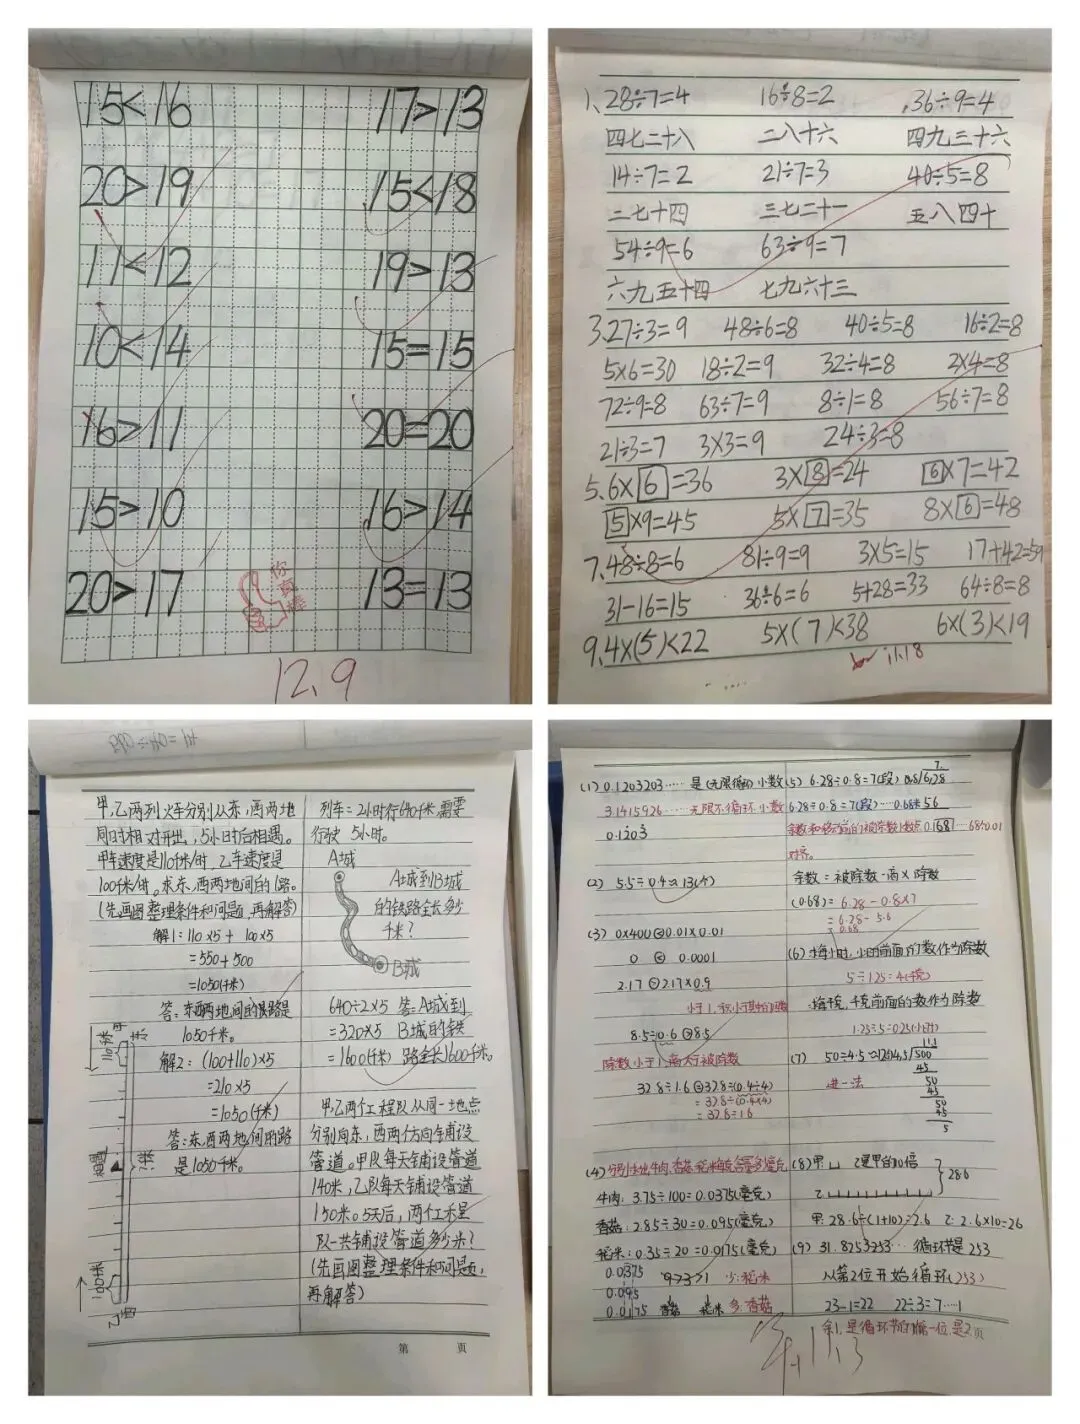 15<16 17>13
20>19 15<18
11<12 19>13
10<14 15=15
16>11 20=20
15>10 16>14
20>17 13=13
你真棒
12.9
1、28÷7=4 16÷8=2 36÷9=4
四七二十八 二八十六 四九三十六
14÷7=2 21÷7=3 40÷5=8
二七十四 三七二十一 五八四十
54÷9=6 63÷9=7
六九五十四 七九六十三
3、27÷3=9 48÷6=8 40÷5=8 16÷2=8
5×6=30 18÷2=9 32÷4=8 2×4=8
72÷9=8 63÷7=9 8÷1=8 56÷7=8
21÷3=7 3×3=9 24÷3=8
5、6×6=36 3×8=24 6×7=42
5×9=45 5×7=35 8×6=48
7、48÷8=6 81÷9=9 3×5=15 17+42=59
31-16=15 36÷6=6 5+28=33 64÷8=8
9、4×(5)<22 5×(7)<38 6×(3)<19
11.18
甲、乙两列火车分别从东,西两地
同时相对开出,5小时后相遇。
甲车速度是110千米/时 乙车速度是
100千米/时。求东、西两地间的路。
(先画图整理条件和问题,再解答)
解1:110×5+100×5
=550+500
=1050(千米)
答:东西两地间的铁路是
1050千米。
解2:(100+110)×5
=210×5
=1050(千米)
答:东,西两地间的路
是1050千米。
110千米
?米
100千米
列车=2小时行640千米,需要
行驶5小时。
A城
A城到B城
的铁路全长多少
千米?
B城
640÷2×5 答:A城到
=320×5 B城的铁
=1600(千米) 路全长1600千米。
甲,乙两个工程队从同一地点
分别向东,西两个方向铺设
管道。甲队每天铺设管道
140米,乙队每天铺设管道
150米。5天后,两个工程
队一共铺设管道多少米?
(先画图整理条件和问题,
再解答)
第 页
(1)0.1203203…… 是(无限循环)小数
3.1415926…… 无限不循环小数
(2) 5.5÷0.4≈13(4)
(3) 0×400<0.01×0.01
0 < 0.0001
2.17>2.17×0.9
8.5÷0.6>8.5
除数小于1,商大于被除数
32.8÷1.6=32.8÷(0.4÷4)
=32.8÷(0.4×4)
=32.8÷1.6
牛肉:3.75÷100=0.0375(毫克)
香菇:2.85÷30=0.095(毫克)
稻米:0.35÷20=0.0175(毫克)
0.0375 9>3>1 少:稻米
0.095
0.0175 香菇 稻米 多:香菇
(5) 6.28÷0.8=7(段) 0.8 6.28
6.28÷0.8=7(段)……0.68米 56
对齐。
余数=被除数-商×除数
(0.68)=6.28-0.8×7
=6.28-5.6
=0.68
(6)每小时,小时前面的数作为除数
5÷1.25=4(千克)
每千克,千克前面的数作为除数
1.25÷5=0.25(小时)
(7) 50÷4.5≈12
进一法
45
50
45
50
45
5
(8)甲: 乙是甲的10倍
乙: 28.6
甲:28.6÷(1+10)=2.6 乙:2.6×10=26
(9) 31.8253253… 循环节是253
从第2位开始循环(253)
23-1=22 22÷3=7…1
余1,是循环节的第一位,是2
页
11.3